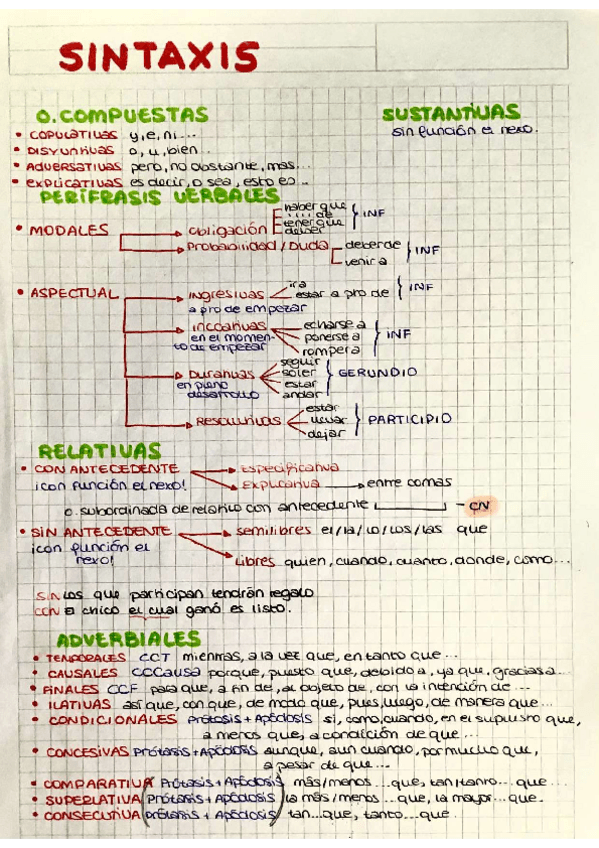 SINTAXIS
O. COMPUESTAS
SUSTANTIVAS
sin función el nexo.
• COPULATIVAS y, e, ni...
• DISYUNTIVAS o, u, bien..
• ADVERSATIVAS pero, no obstante, mas...
• EXPLICATIVAS es decir, o sea, esto es..
PERÍFRASIS VERBALES
• MODALES
Obligación
haber que
de
tener que
deber
INF
Probabilidad / Duda
deber de
venir a
INF
• ASPECTUAL
Ingresivas
a pro de empezar
ir a
estar a pro de
INF
Incoativas
en el momen-
to de empezar
echarse a
ponerse a
romper a
INF
Durativas
en pleno
desarrollo
seguir
soler
estar
andar
GERUNDIO
Resultativas
estar
llevar
dejar
PARTICIPIO
RELATIVAS
• CON ANTECEDENTE
¡con función el nexo!
Especificativa
Explicativa
entre comas
o. subordinada de relativo con antecedente
- CN
• SIN ANTECEDENTE
¡con función el
nexo!
semilibres el/la/lo/los/las que
libres quien, cuando, cuanto, donde, como...
SIN Los que participan tendrán regalo
CON El chico el cual ganó es listo.
ADVERBIALES
• TEMPORALES CCT mientras, a la vez que, en tanto que...
• CAUSALES CCCausa porque, puesto que, debido a, ya que, gracias a...
• FINALES CCF para que, a fin de, al objeto de, con la intención de...
• ILATIVAS así que, con que, de modo que, pues, luego, de manera que...
• CONDICIONALES Prótasis + Apódosis si, como, cuando, en el supuesto que,
a menos que, a condición de que...
• CONCESIVAS Prótasis + Apódosis aunque, aun cuando, por mucho que,
a pesar de que...
• COMPARATIVA (Prótasis + Apódosis) más/menos ...que, tan/tanto... que
• SUPERLATIVA (Prótasis + Apódosis) la más/menos ...que, la mayor...que.
• CONSECUTIVA (prótasis + Apódosis) tan...que, tanto...que